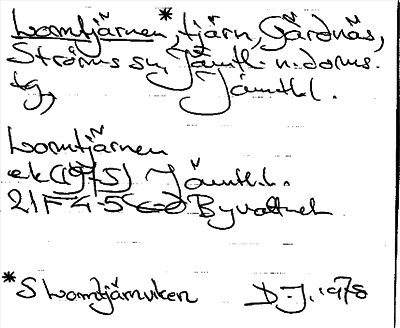 Lomtjärnen*, tjärn, Gärdnäs,
Ströms sn, Jämtl. n. doms.
tg, Jämtl. l.
Lomtjärnen
ek (1975) Jämtl. l.
21F 4-5 Byvattnet
*S Lomtjärnviken D-J. 1978